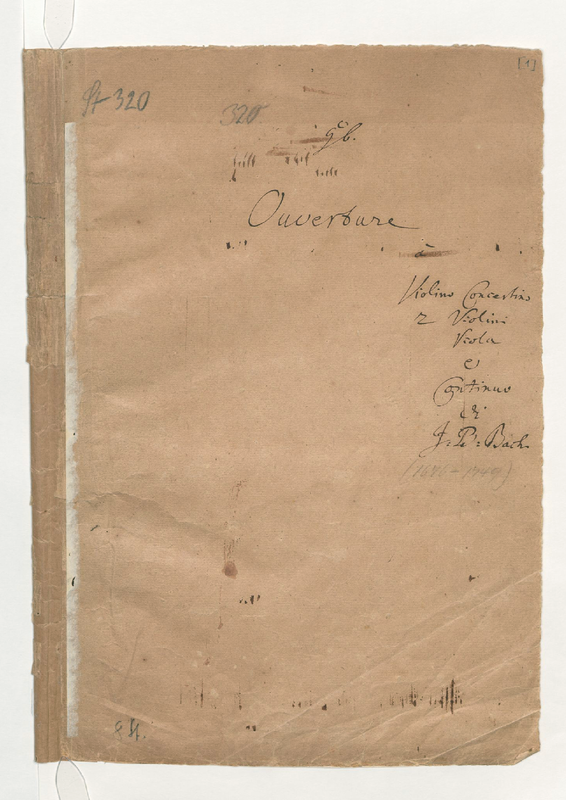 [1]
St 320
320
G b.
Ouverture
à
Violino Concertino
2 Violini
Viola
e
Continuo
di
J: B: Bach
(1676 - 1749)
8 Bl.